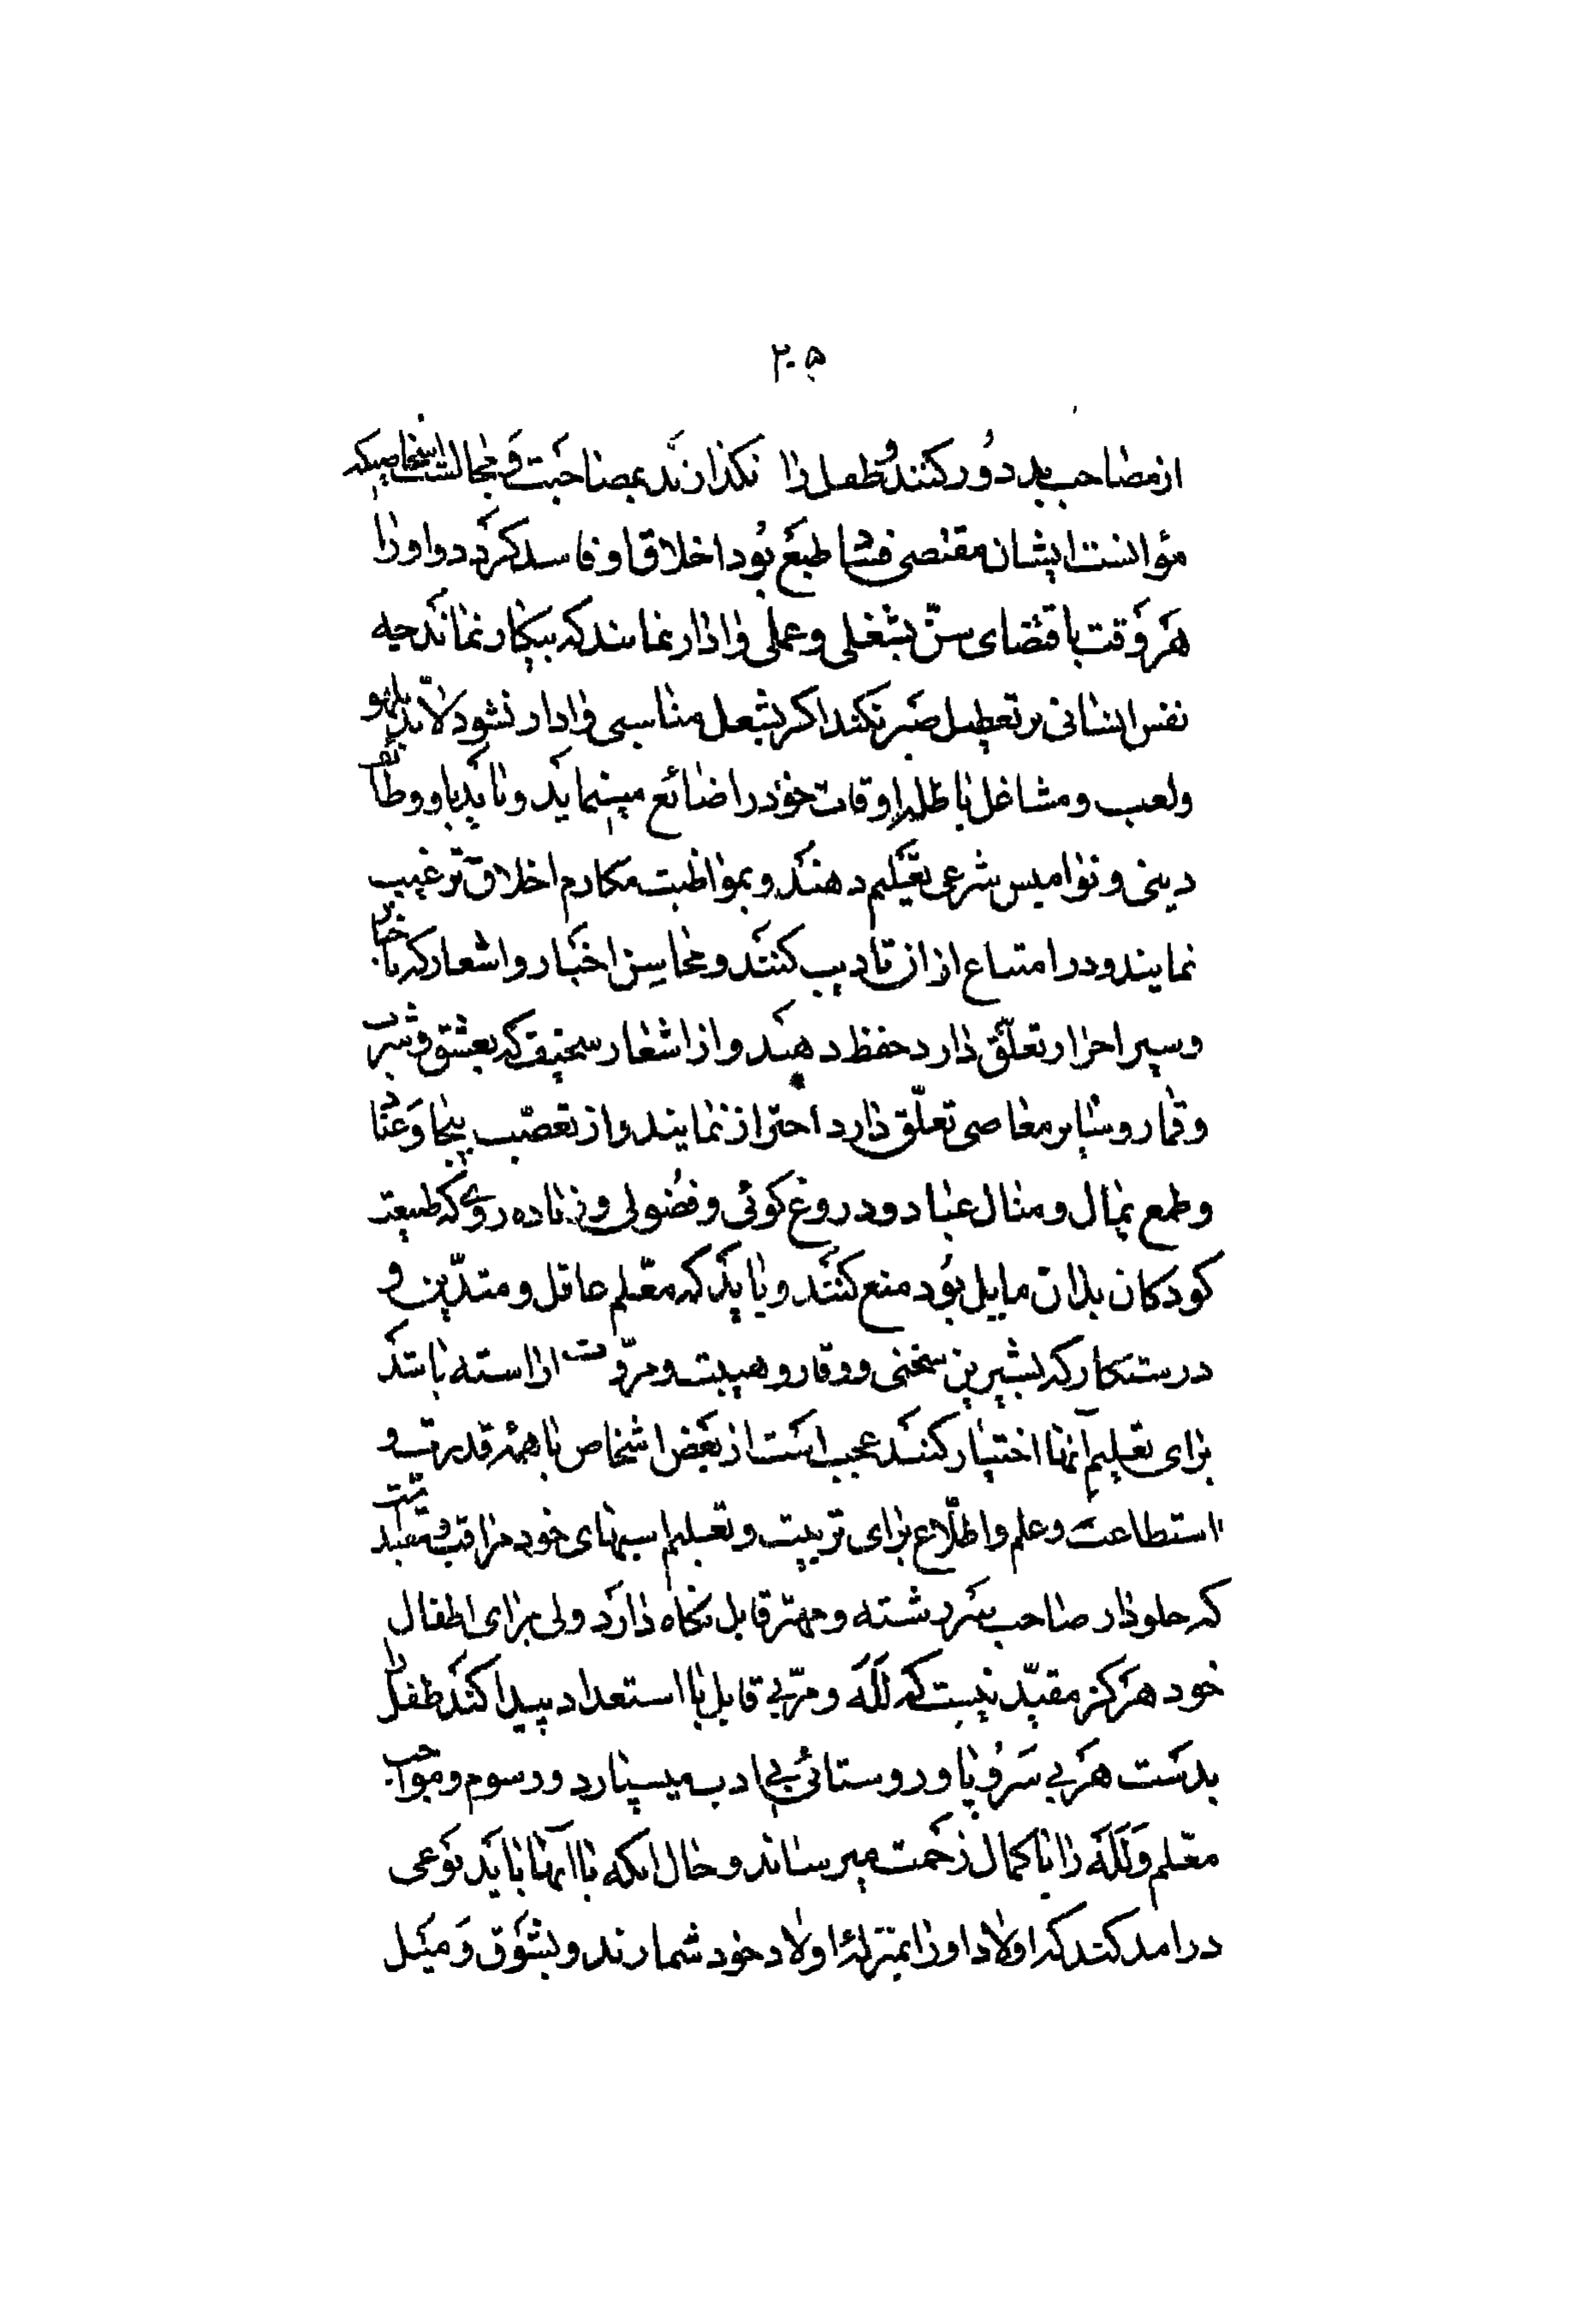 ۲۰۵
از مصاحب بد دور کنند و طفل را نگذارند بمصاحبت و مجالست اشخاصیکه
مؤانست ایشان مقتضی فساد طبع بود اخلاق او فاسد کردد و او را
هر وقت باقتضای سنّ بشغلی و عملی وادار نمایند که بیکار نماند چه
نفس انسانی بر تعطیل صبر نکند اکر بشغل مناسبی وادار نشود لابدّ بلهو
ولعب و مشاغل باطله اوقات خود را ضائع مینماید و باید باو وظائف
دینی و نوامیس شرعی تعلیم دهند و بمواظبت مکارم اخلاق ترغیب
نمایند و در امتناع از ان تادیب کنند و محاسن اخبار و اشعار که با
وسیر احرار تعلّق دارد حفظ دهند و از اشعار سخیف که بعشق و شرب
وقمار و سایر معاصی تعلّق دارد احتراز نمایند و از تعصّب بیجا و عناد
وطمع بمال و منال عباد و دروغ کوئی و فضولی و زیاده روی که طبیعت
کودکان بدان مایل بود منع کنند و باید که معّلم عاقل و متدّین و
درستکار که بشیرین سخنی و وقار و هیبت و مروّت اراسته باشد
برای تعلیم آنها اختیار کنند عجب است از بعض اشخاص با همه قدرت و
استطاعت و علم و اطّلاع برای تربیت و تعلیم اسبهای خود مراقبت و تقیّد
که جلودار صاحب سررشته و مهتر قابل نکاه دارد ولی برای اطفال
خود هرکز مقیّد نیست که لَلَه و مرّبی قابل با استعداد پیدا کند طفل را
بدست هر بی سر و پا و روستائی بی ادب میسپارد و رسوم و مواجب
معّلم و لَلَه را با کمال زحمت میرساند و حال انکه با آنها باید نوعی
درامد کند که اولاد او را بمنزلهٔ اولاد خود شمارند و بشوق و میل